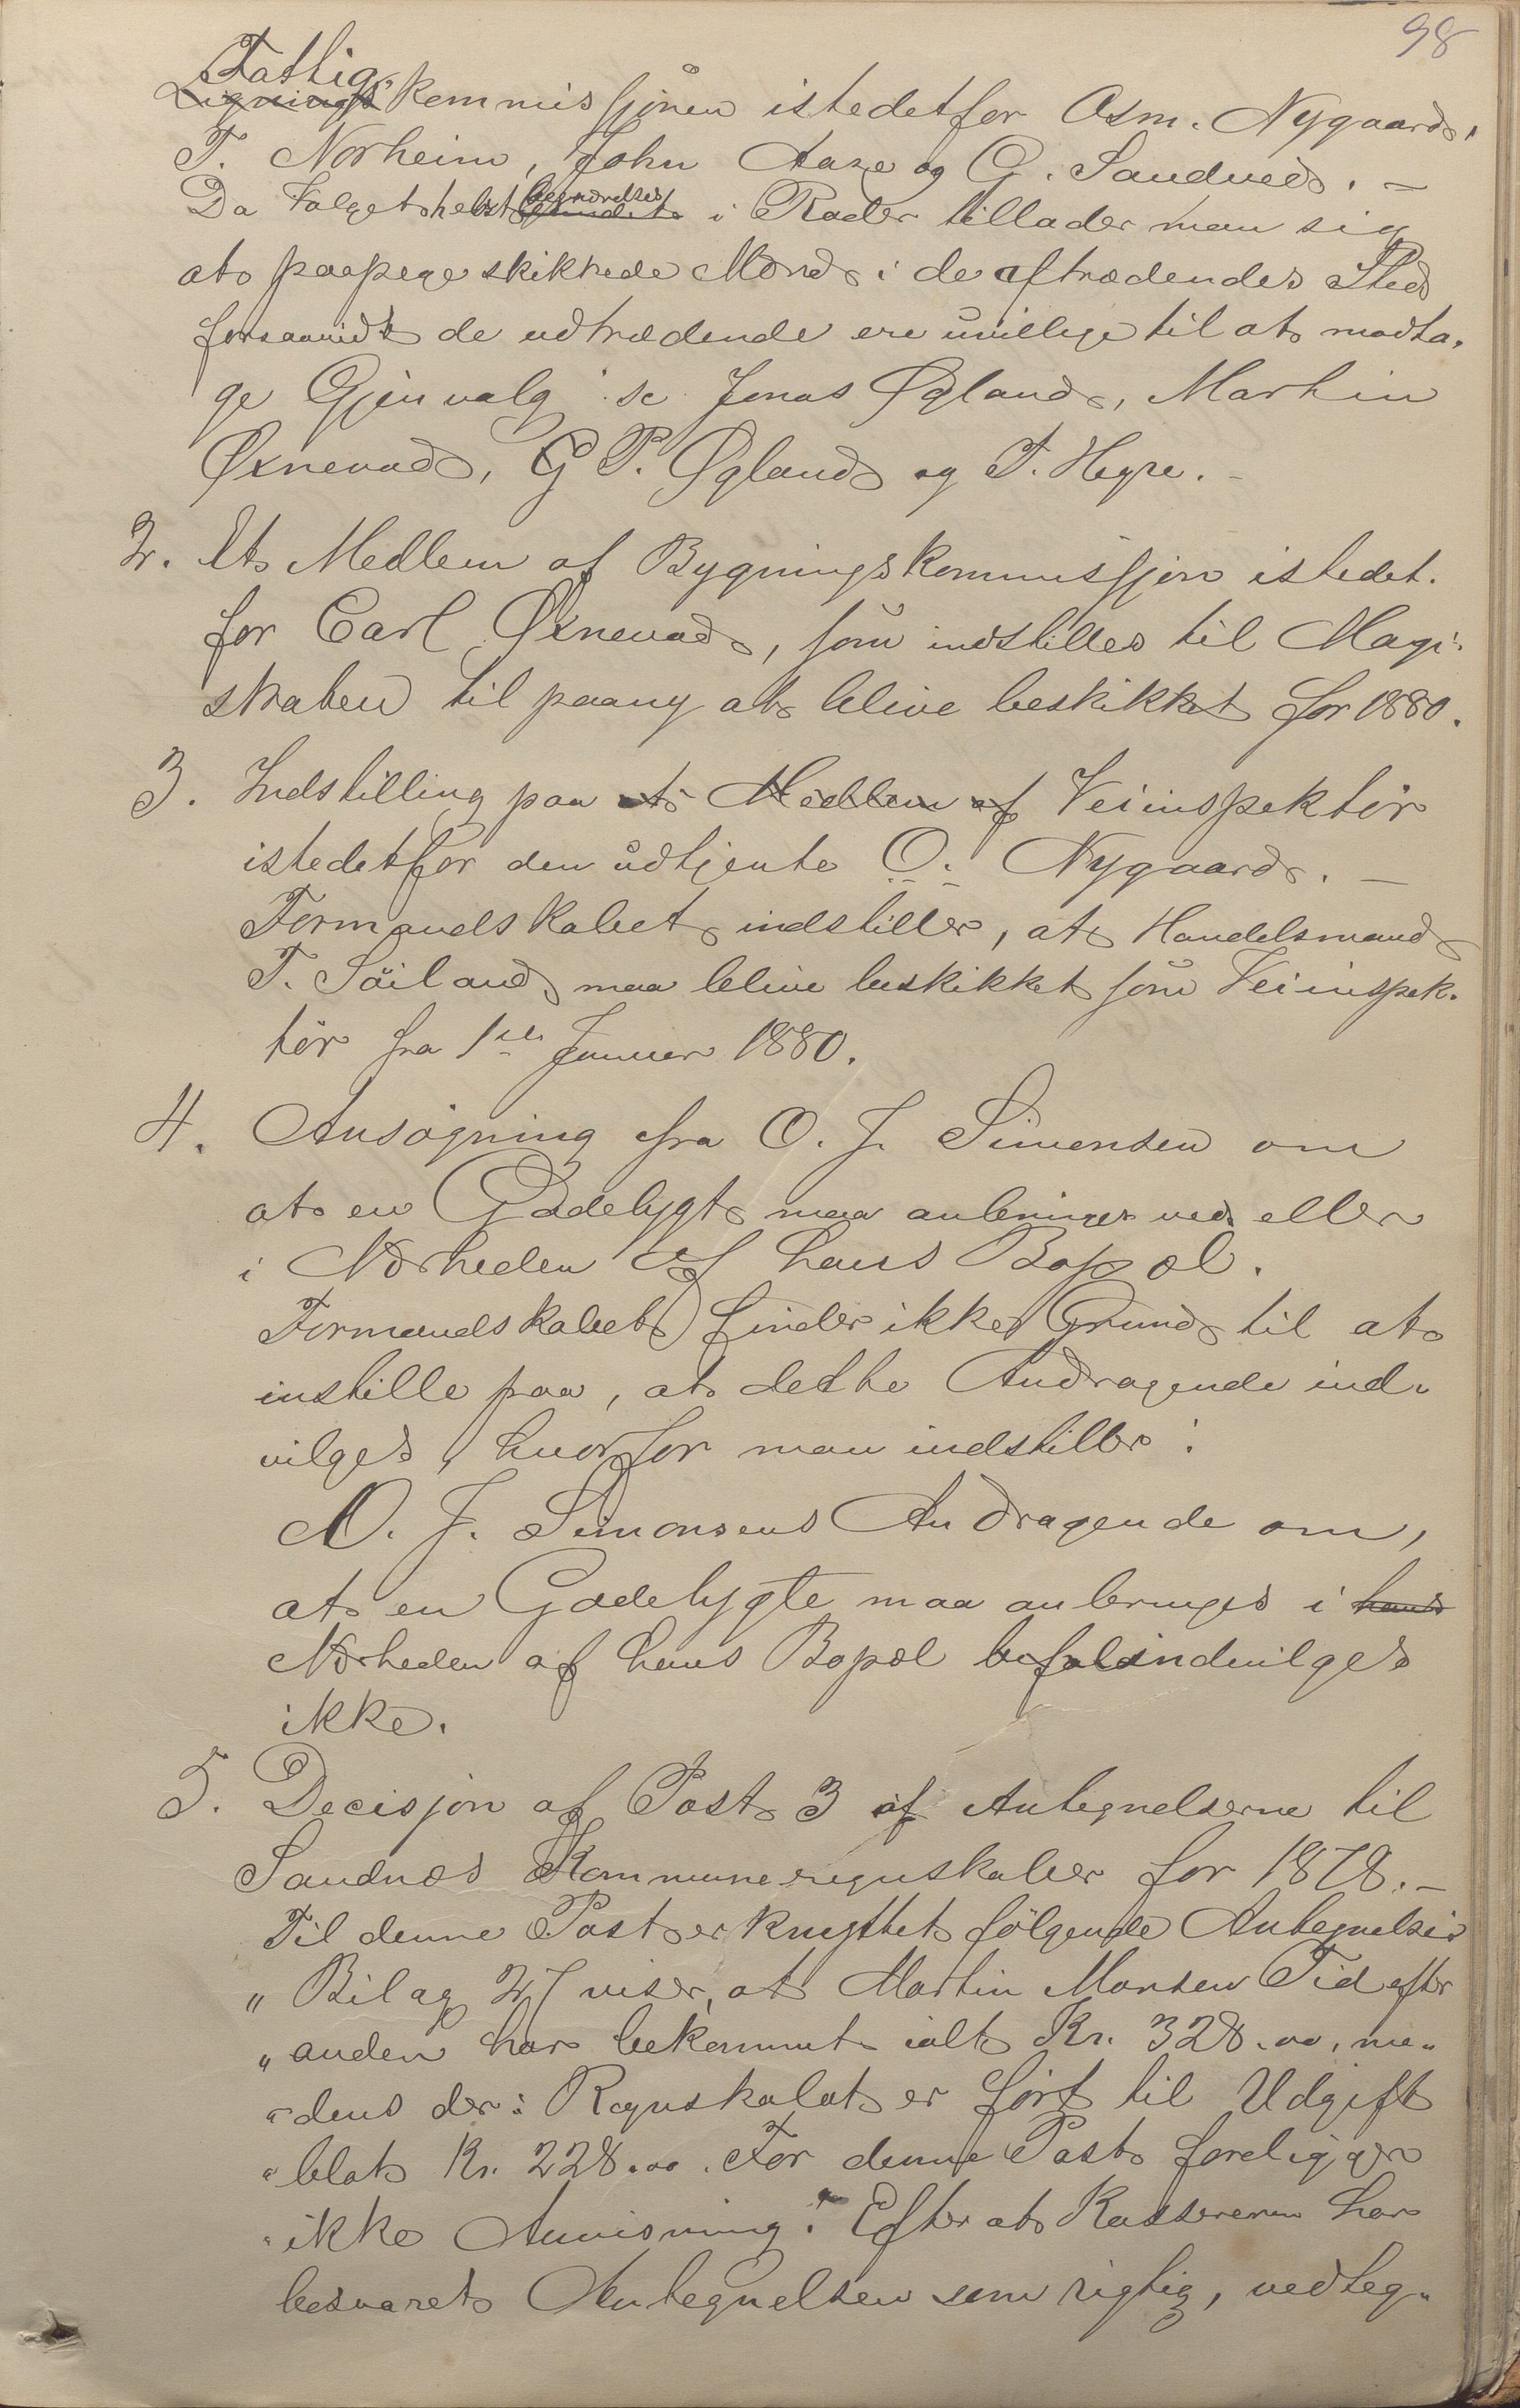 98
Fattig-
Lignings kommissjonen istedetfor Asm. Nygaard,
T. Norheim, John Aase og G. Sandved. —
Da Valget helst i Rader tillader man sig
at paapege skikkede Mænd i de aftrædendes Sted
forsaavidt de udtrædende ere uvillige til at modta-
ge Gjenvalg sc Jonas Øgland, Martin
Øxnevad, G P. Øgland og T. Hegre. -
2. Et Medlem af Bygningskommissjon istedet-
for Carl Øxnevad, som indstilles til Magi-
straten til paany at blive beskikket for 1880.
3. Indstilling paa et Medlem af Veiinspektør
istedetfor den udtjente O. Nygaard. —
Formandskabet indstiller, at Handelsmand
T. Söiland maa blive beskikket som Veiinspek-
tør fra 1ste Januar 1880.
4. Ansøgning fra O. J. Simonsen om
at en Gadelygt maa anbringes ved eller
i Nærheden af hans Bopæl.
Formandskabet finder ikke Grund til at
instille paa, at dette Andragende ind-
vilges, hvorfor man indstiller:
O. J. Simonsens Andragende om,
at en Gadelygte maa anbringes i hans
Nærheden af hans Bopæl indvilges
ikke.
5. Decisjon af Post 3 af Antegnelserne til
Sandnæs Kommuneregnskaber for 1878. —
Til denne Post er knyttet følgende Antegnelse
„ Bilag 27 viser, at Martin Monsen Tid efter
„ anden har bekommet ialt Kr. 328.00, me-
„ dens der i Regnskabet er ført til Udgift
„ blot Kr. 228.00. For denne Post foreligger
„ ikke Anvisning." Efter at Kassereren har
besvaret Antegnelsen som rigtig, vedteg-